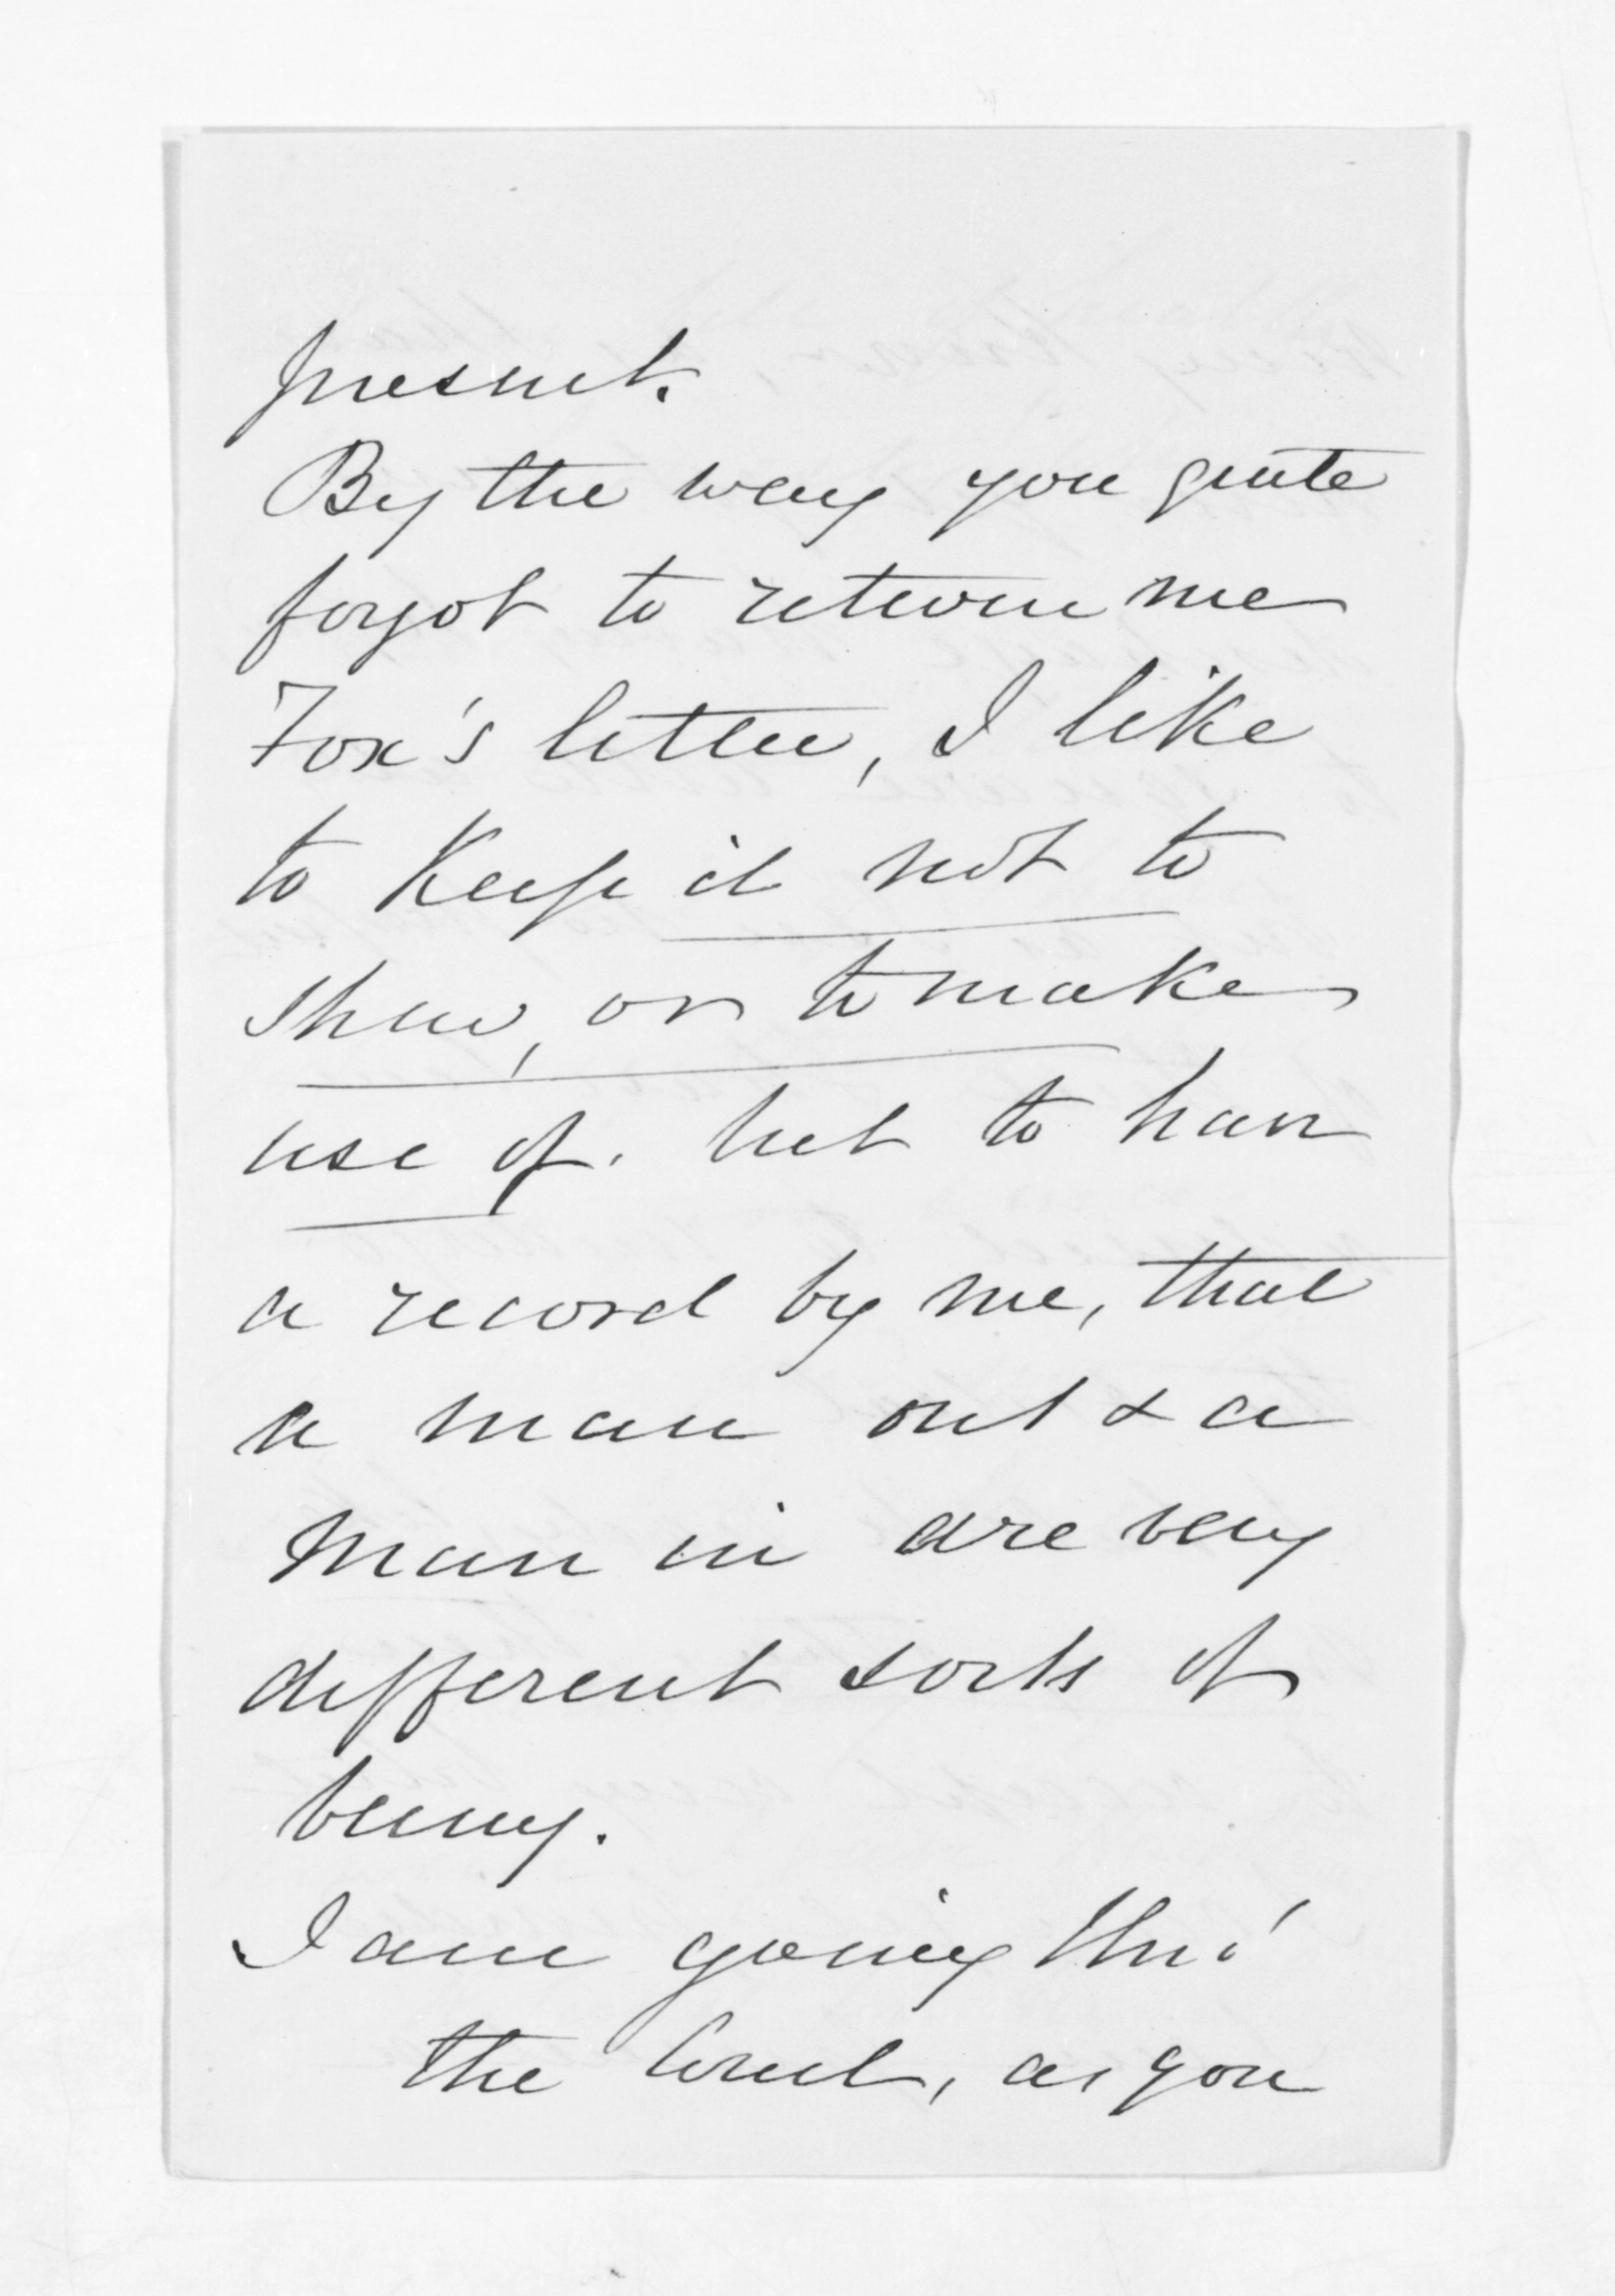 present.
By the way you quite
forgot to return me
Fox's letter, I like
to Keep it not to
shew, or to make
use of. but to have
a record by me, that
a man out & a
man in are very
different sorts of
being.
I am going thro'
the Court, as you